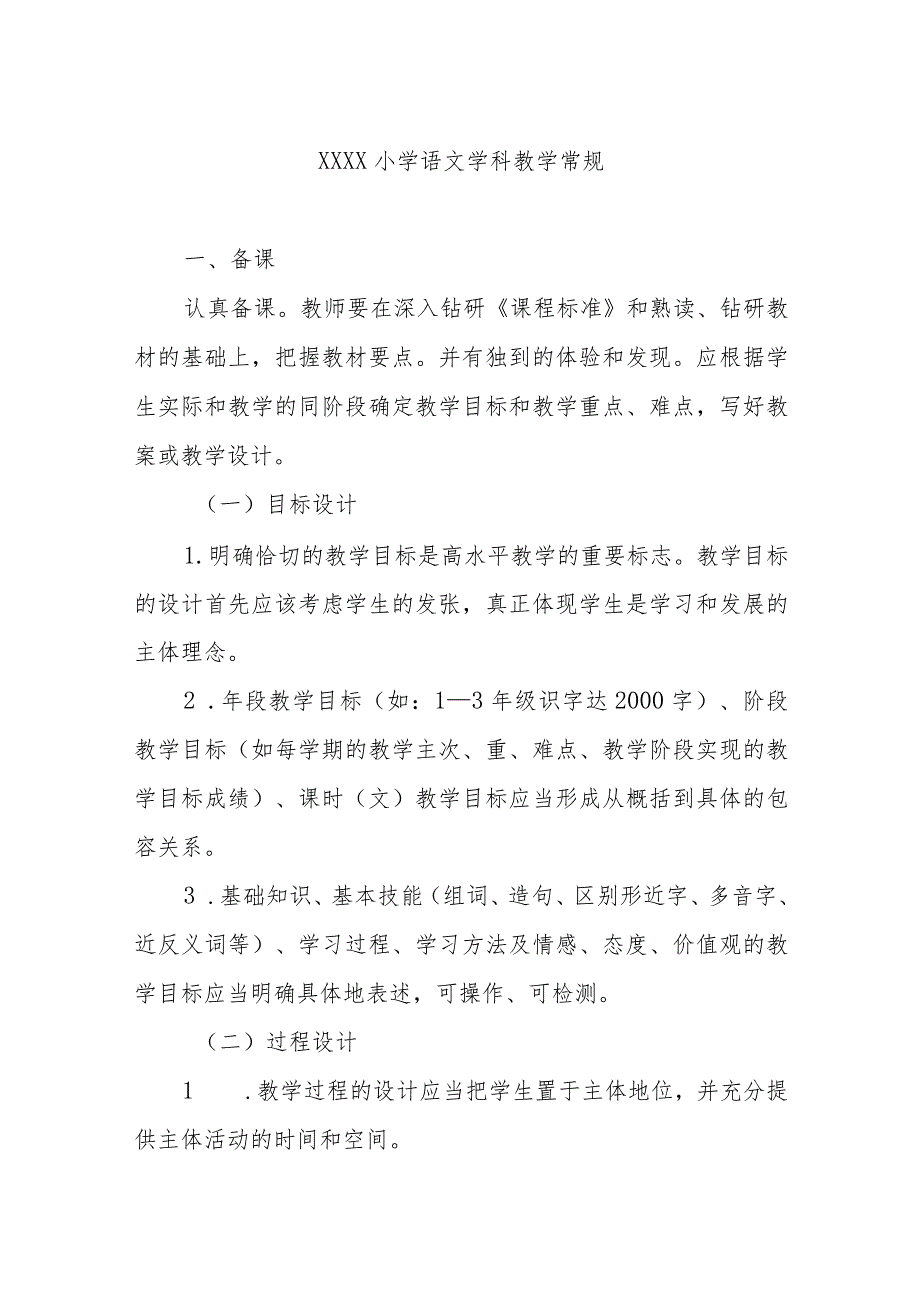 XXXX小学语文学科教学常规
一、备课
认真备课。教师要在深入钻研《课程标准》和熟读、钻研教
材的基础上，把握教材要点。并有独到的体验和发现。应根据学
生实际和教学的同阶段确定教学目标和教学重点、难点，写好教
案或教学设计。
（一）目标设计
1.明确恰切的教学目标是高水平教学的重要标志。教学目标
的设计首先应该考虑学生的发张，真正体现学生是学习和发展的
主体理念。
2 .年段教学目标（如：1—3年级识字达2000字）、阶段
教学目标（如每学期的教学主次、重、难点、教学阶段实现的教
学目标成绩）、课时（文）教学目标应当形成从概括到具体的包
容关系。
3 .基础知识、基本技能（组词、造句、区别形近字、多音字、
近反义词等）、学习过程、学习方法及情感、态度、价值观的教
学目标应当明确具体地表述，可操作、可检测。
（二）过程设计
1 .教学过程的设计应当把学生置于主体地位，并充分提
供主体活动的时间和空间。